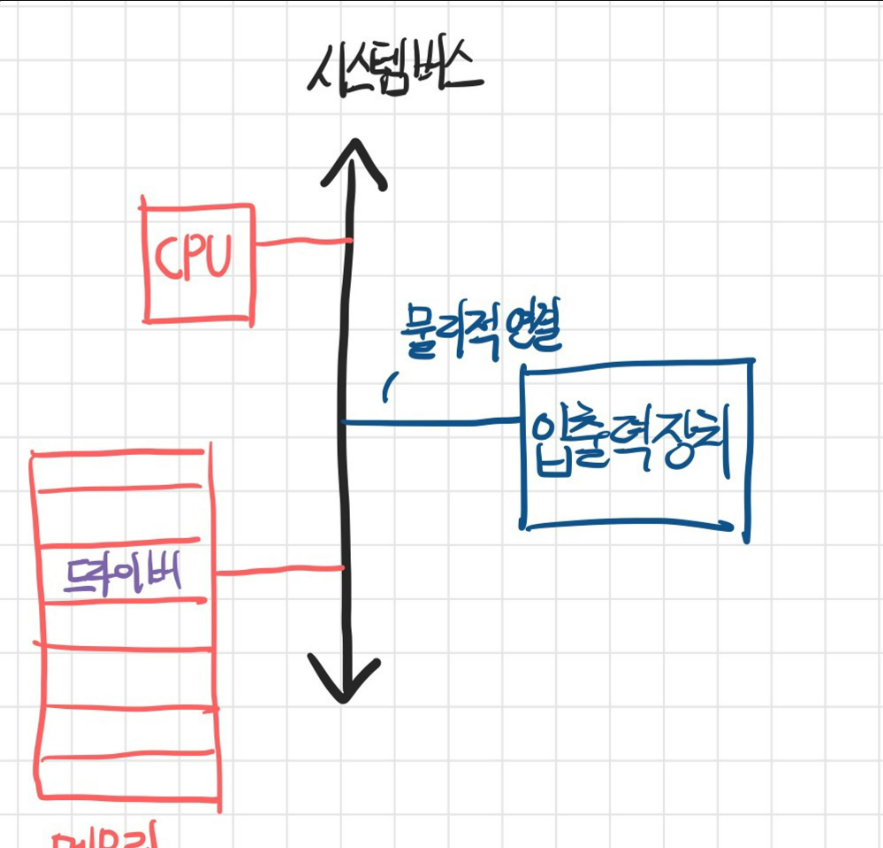 시스템버스
CPU
물리적 연결
입출력장치
드라이버
메모리